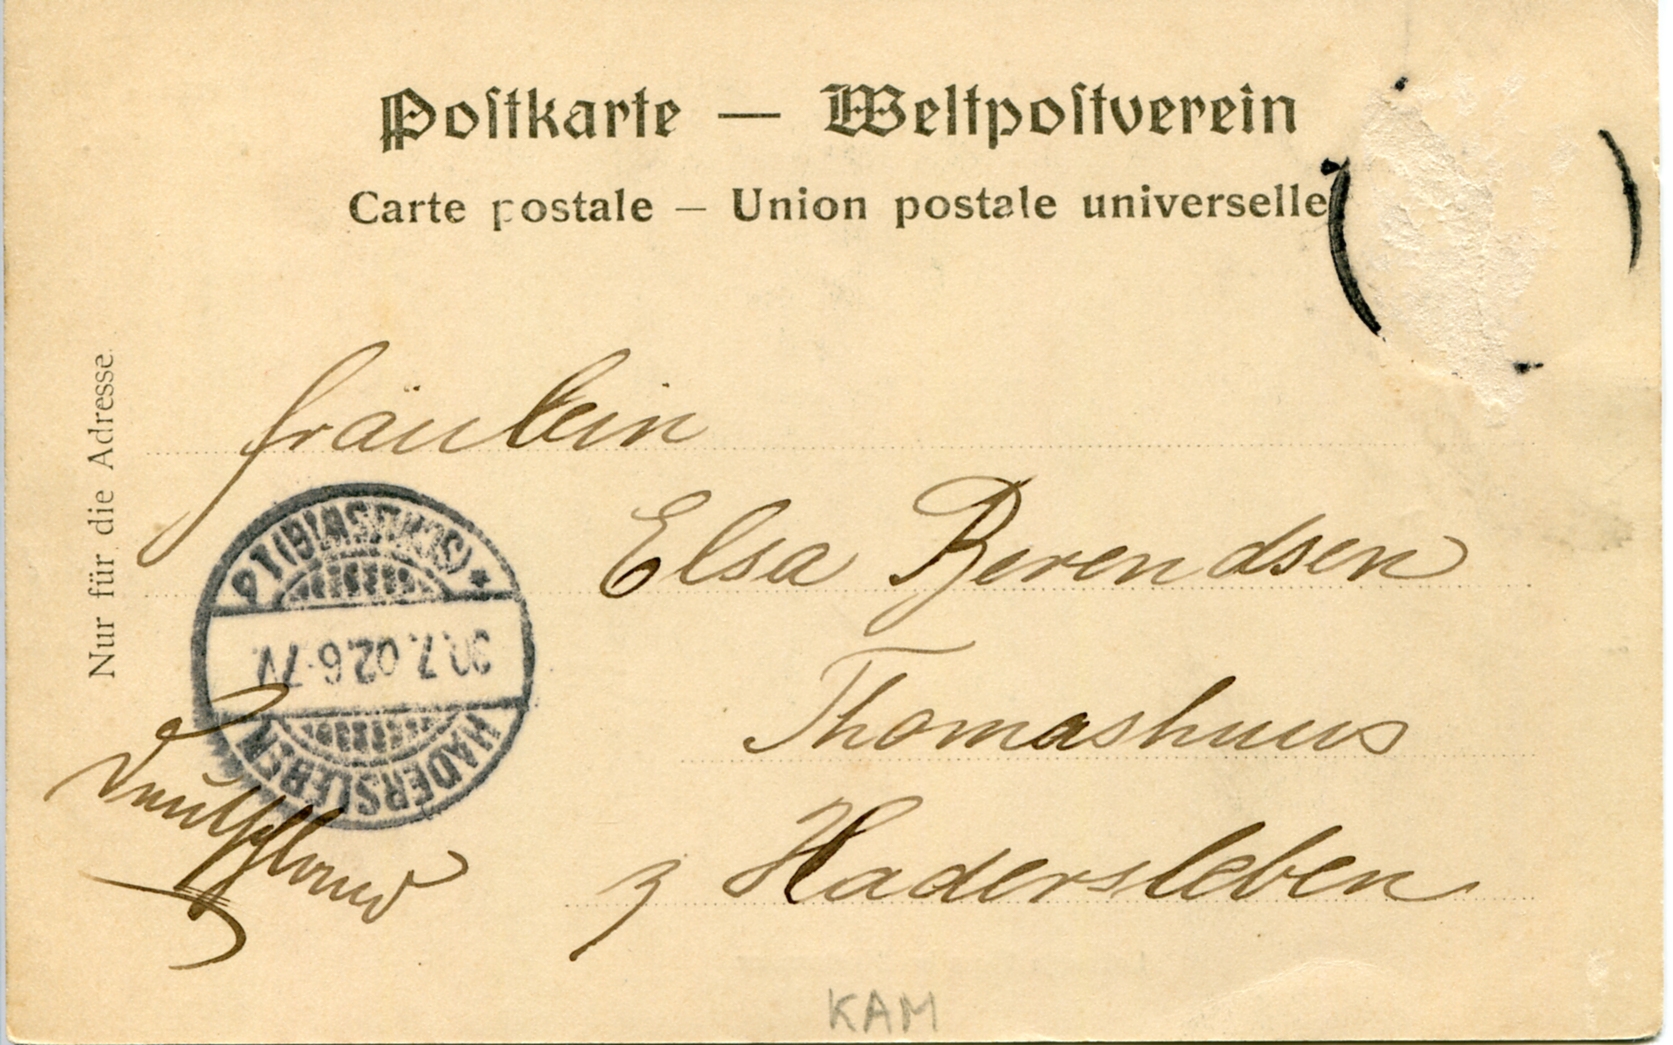 Postkarte — Weltpostverein
Carte postale — Union postale universelle
Nur für die Adresse.
Fräulein
Elsa Berendsen
Thomashuus
z Hadersleben
Deutschland
HADERSLEBEN
7.02.6-7V
KAM